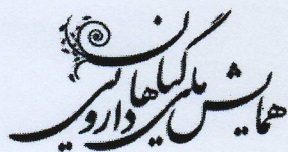 همایش ملی گیاهان دارویی